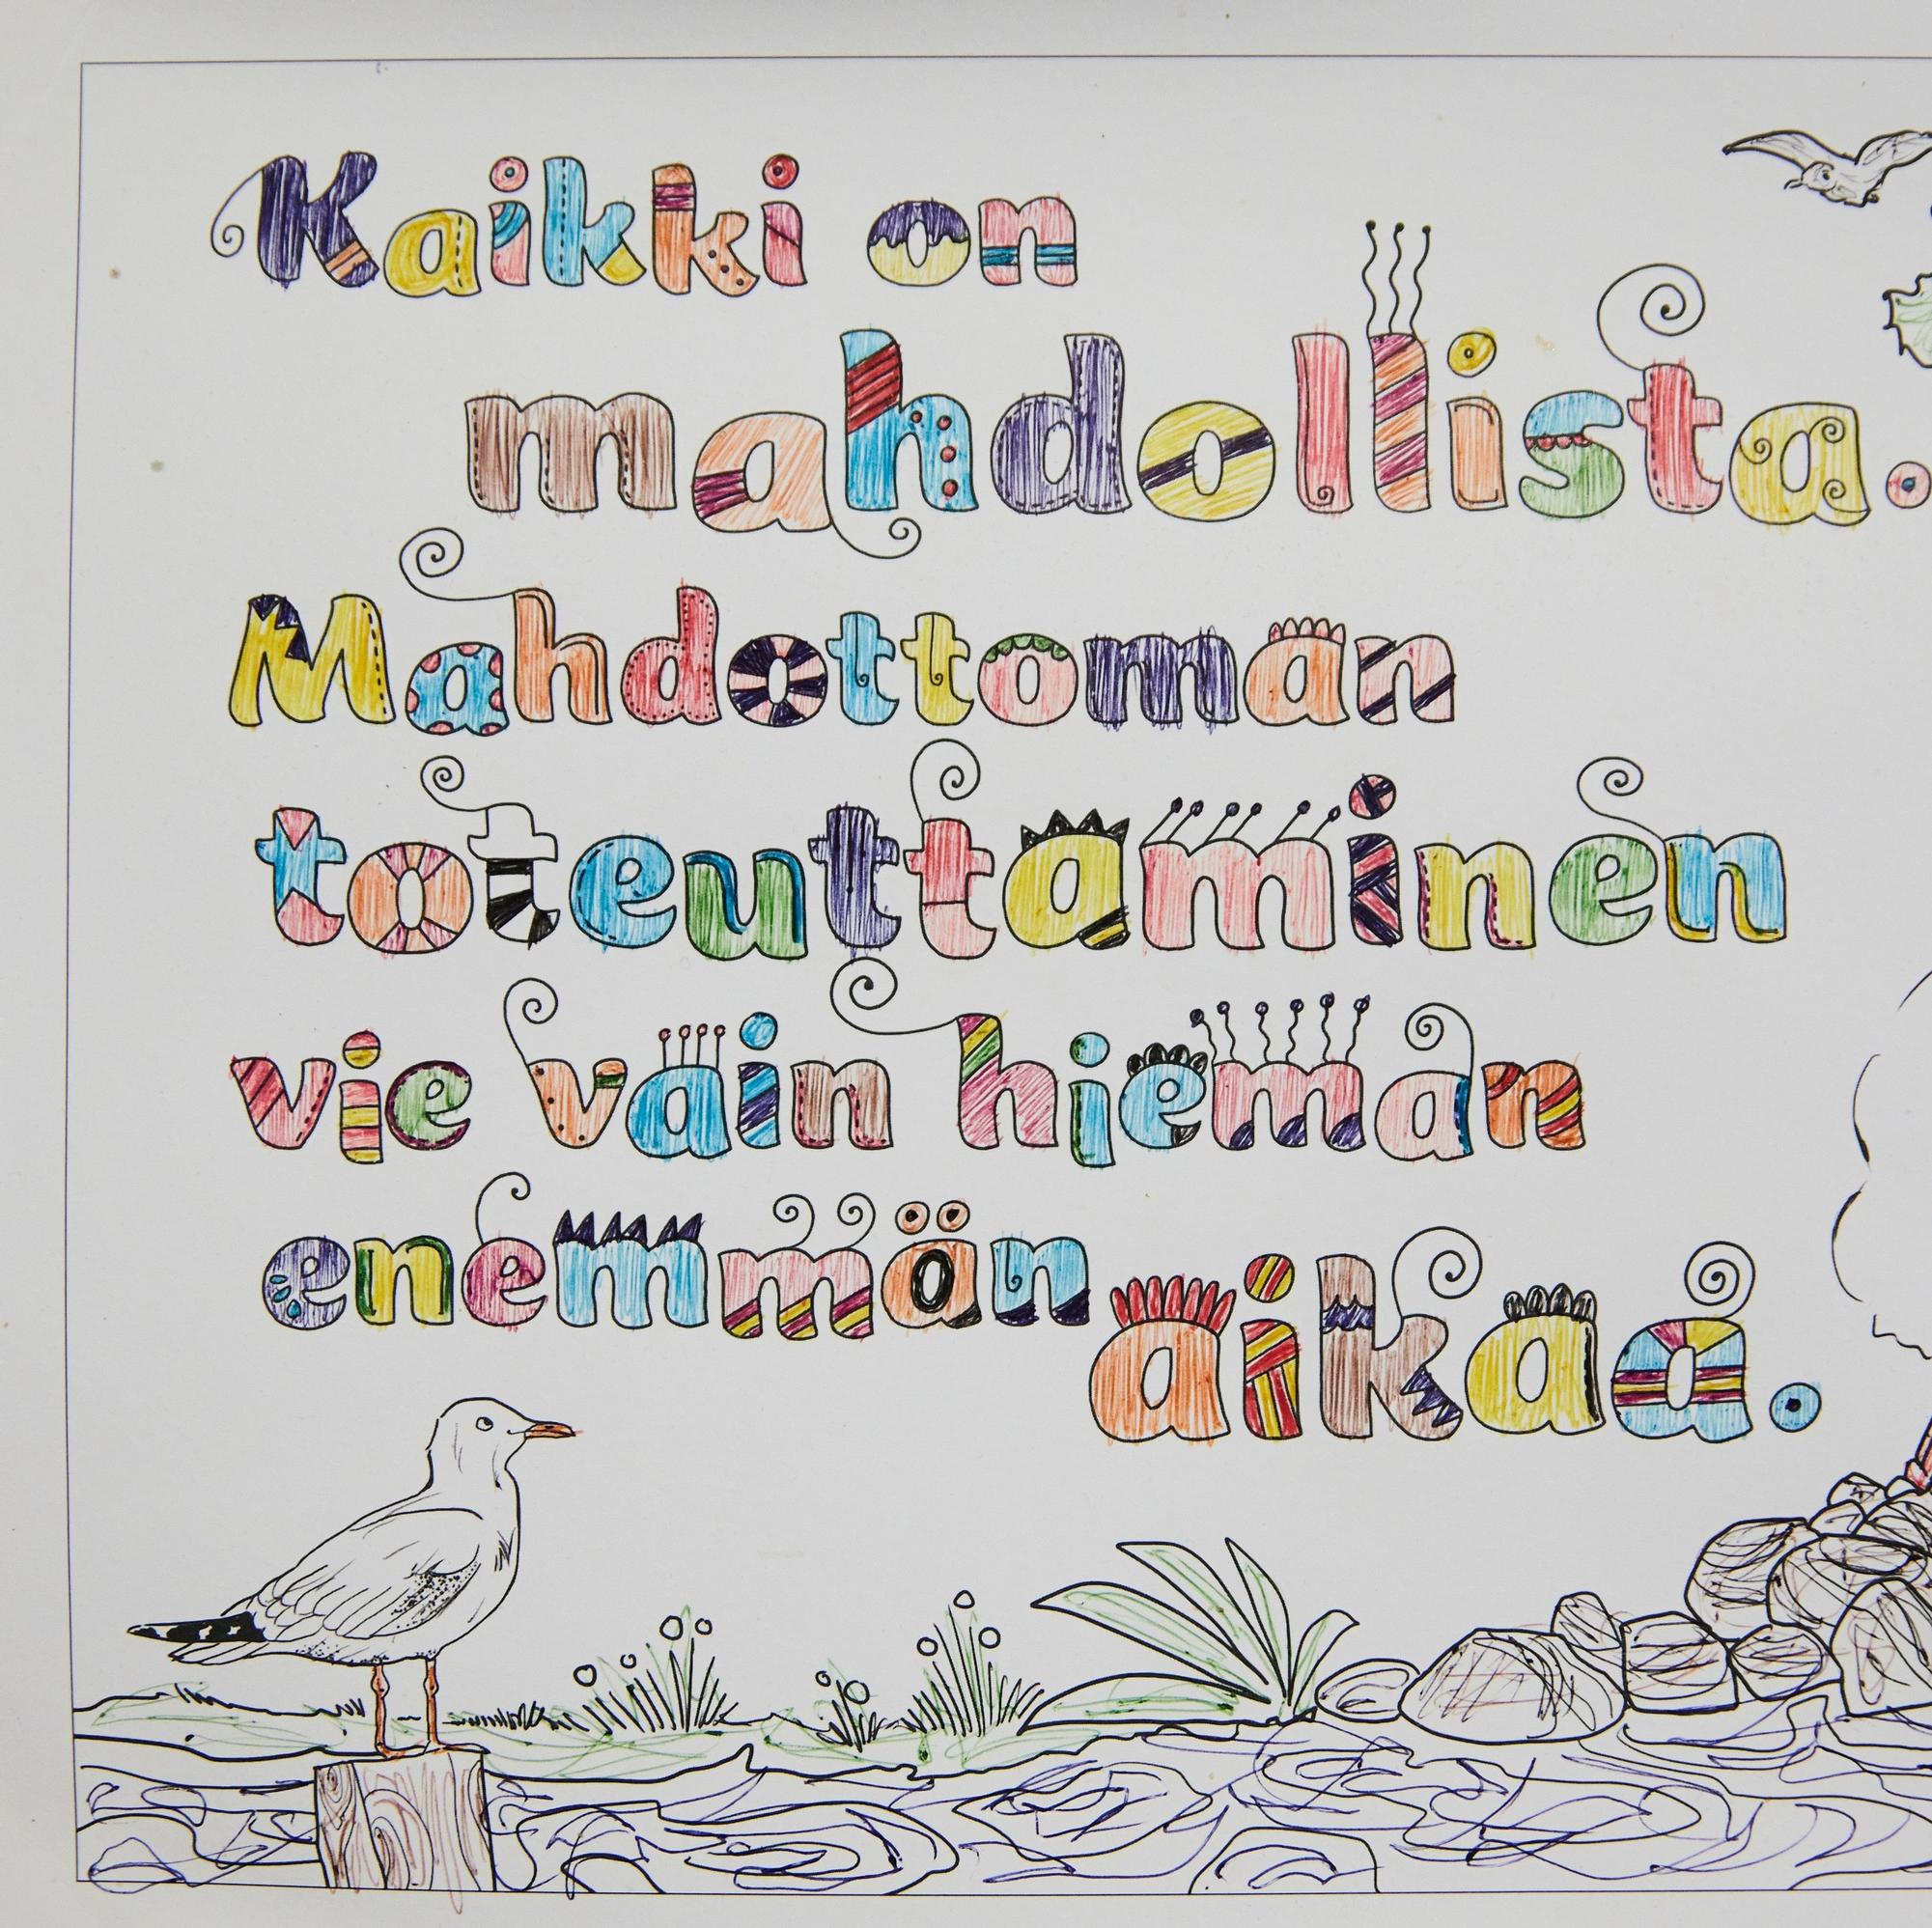 Kaikki on
mahdollista.
Mahdottoman
toteuttaminen
vie vain hieman
enemmän aikaa.